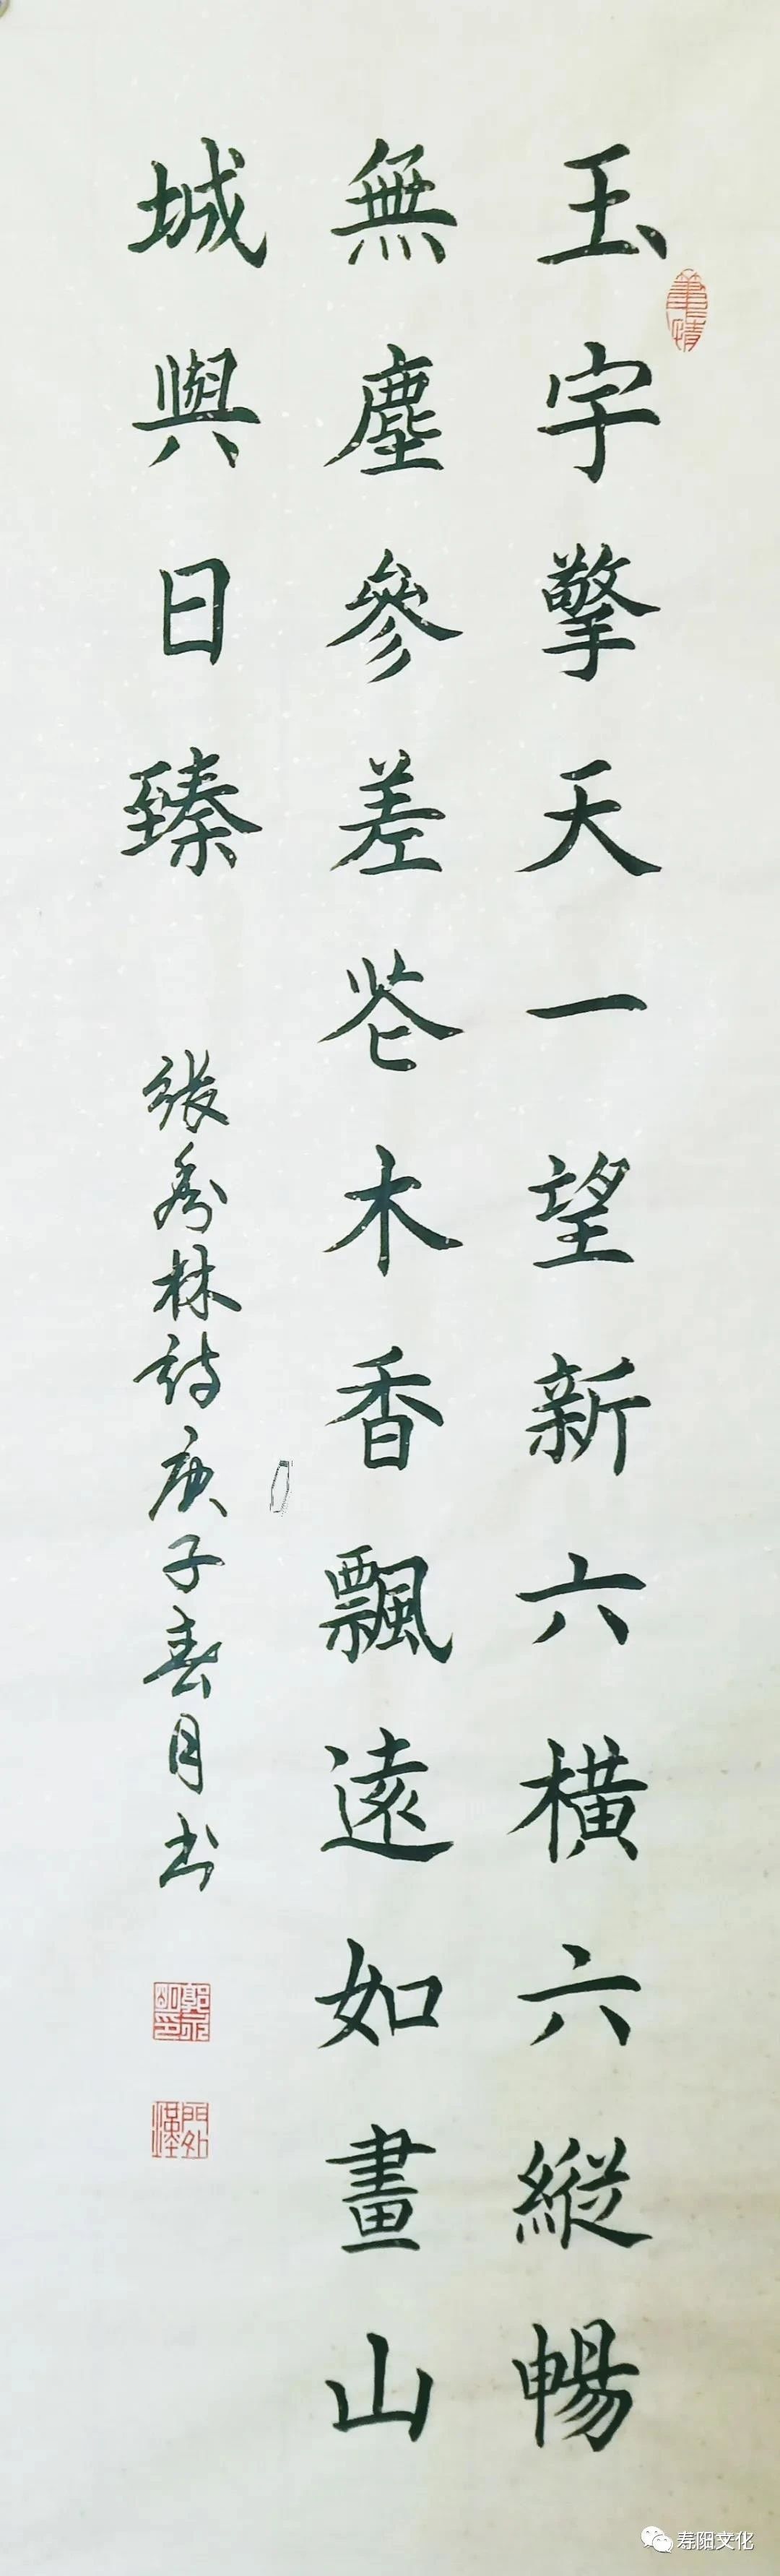 玉字擎天一望新六橫六縱暢
無塵參差花木香飄遠如畫山
城與日臻
張秀林詩庚子春月书
寿阳文化